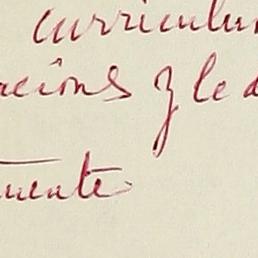 curriculu
acions q le d
mente